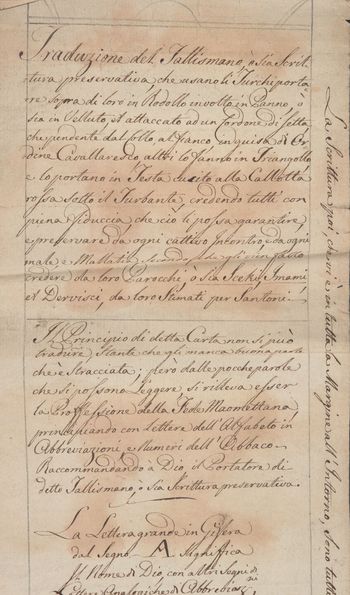 Traduzione del Tallismano, o sia Scrit-
tura preservativa, che usano li Turchi porta
re sopra di loro in Rodollo involto in Panno, o
sia in Velluto, et attaccato ad un Cordone di Setta
che pendente dal Collo, al fianco in guisa di Or
dine Cavallaresco, altri lo fanno in Triangollo
e lo portano in Testa cucito alla Callotta
rossa sotto il Turbante, credendo tutti con
piena fiduccia che ciò li possa garantire,
e preservare da ogni cattivo Incontro, e da ogni
male e Mallatia, secondo che gli vien fatto
credere da loro Parocchi, o sia Sceky, Imami
et Dervisci, da loro Stimati per Santoni.
Il Principio di detta Carta non si può
tradure, stante che gli manca buona parte
che è Stracciata; però dalle poche parole
che si possono Leggere, si rilleva esser
la Proffessione della Fede Maomettana,
principiando con Lettere dell'Alfabeto in
Abbreviazioni, e Numeri dell'Abbaco
Raccommandando à Dio il Portatore di
detto Tallismano, o sia Scrittura preservativa.
La Lettera grande in Giffera
dal Segno A Significa
Il Nome di Dio, con altri Segni di
Lettere Analogiche di Abbreviaz
La Scrittura poi che vi è in tutta la Margine all'Intorno, sono tutt